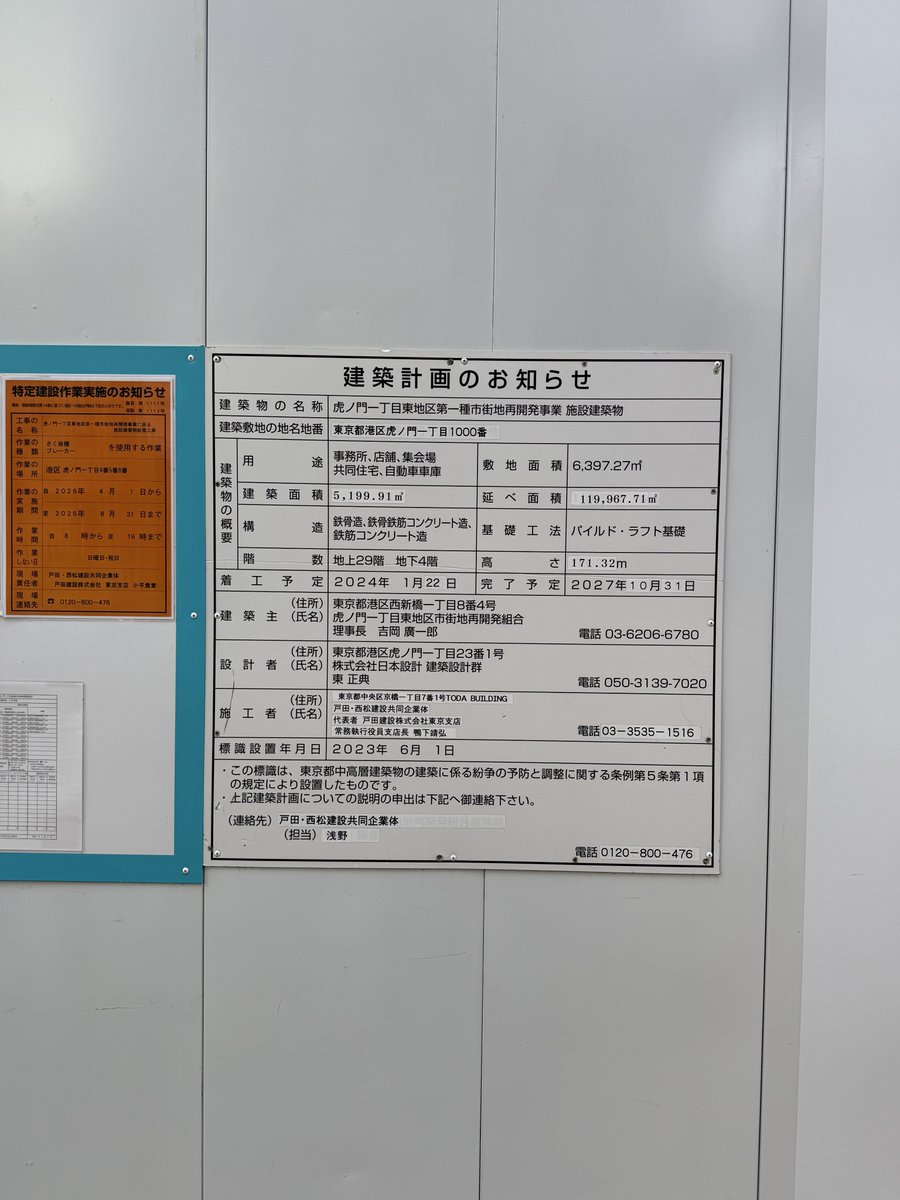 特定建設作業実施のお知らせ
工事の名称
虎ノ門一丁目東地区第一種市街地再開発事業に係る
施設建築物新築工事
作業の種類
さく岩機
ブレーカー
を使用する作業
作業の場所
港区 虎ノ門一丁目4番5番8番
作業の実施期間
自 2026年 4月 1日から
至 2026年 8月 31日まで
作業時間
自 8 時から 至 19時まで
作業しない日
日曜日・祝日
現場責任者
戸田・西松建設共同企業体
戸田建設株式会社 東京支店 小平貴章
現場連絡先
☎ 0120-800-476
建築計画のお知らせ
建築物の名称 虎ノ門一丁目東地区第一種市街地再開発事業 施設建築物
建築敷地の地名地番 東京都港区虎ノ門一丁目1000番
建築物の概要
用途 事務所、店舗、集会場
共同住宅、自動車車庫
敷地面積 6,397.27㎡
建築面積 5,199.91㎡ 延べ面積 119,967.71㎡
構造 鉄骨造、鉄骨鉄筋コンクリート造、
鉄筋コンクリート造
基礎工法 パイルド・ラフト基礎
階数 地上29階 地下4階 高さ 171.32m
着工予定 2024年 1月22日 完了予定 2027年10月31日
建築主 (住所) 東京都港区西新橋一丁目8番4号
(氏名) 虎ノ門一丁目東地区市街地再開発組合
理事長 吉岡 廣一郎 電話 03-6206-6780
設計者 (住所) 東京都港区虎ノ門一丁目23番1号
(氏名) 株式会社日本設計 建築設計群
東 正典 電話 050-3139-7020
施工者 (住所) 東京都中央区京橋一丁目7番1号TODA BUILDING
(氏名) 戸田・西松建設共同企業体
代表者 戸田建設株式会社東京支店
常務執行役員支店長 鴨下靖弘 電話03-3535-1516
標識設置年月日 2023年 6月 1日
・この標識は、東京都中高層建築物の建築に係る紛争の予防と調整に関する条例第5条第1項
の規定により設置したものです。
・上記建築計画についての説明の申出は下記へ御連絡下さい。
(連絡先) 戸田・西松建設共同企業体
(担当) 浅野
電話 0120-800-476